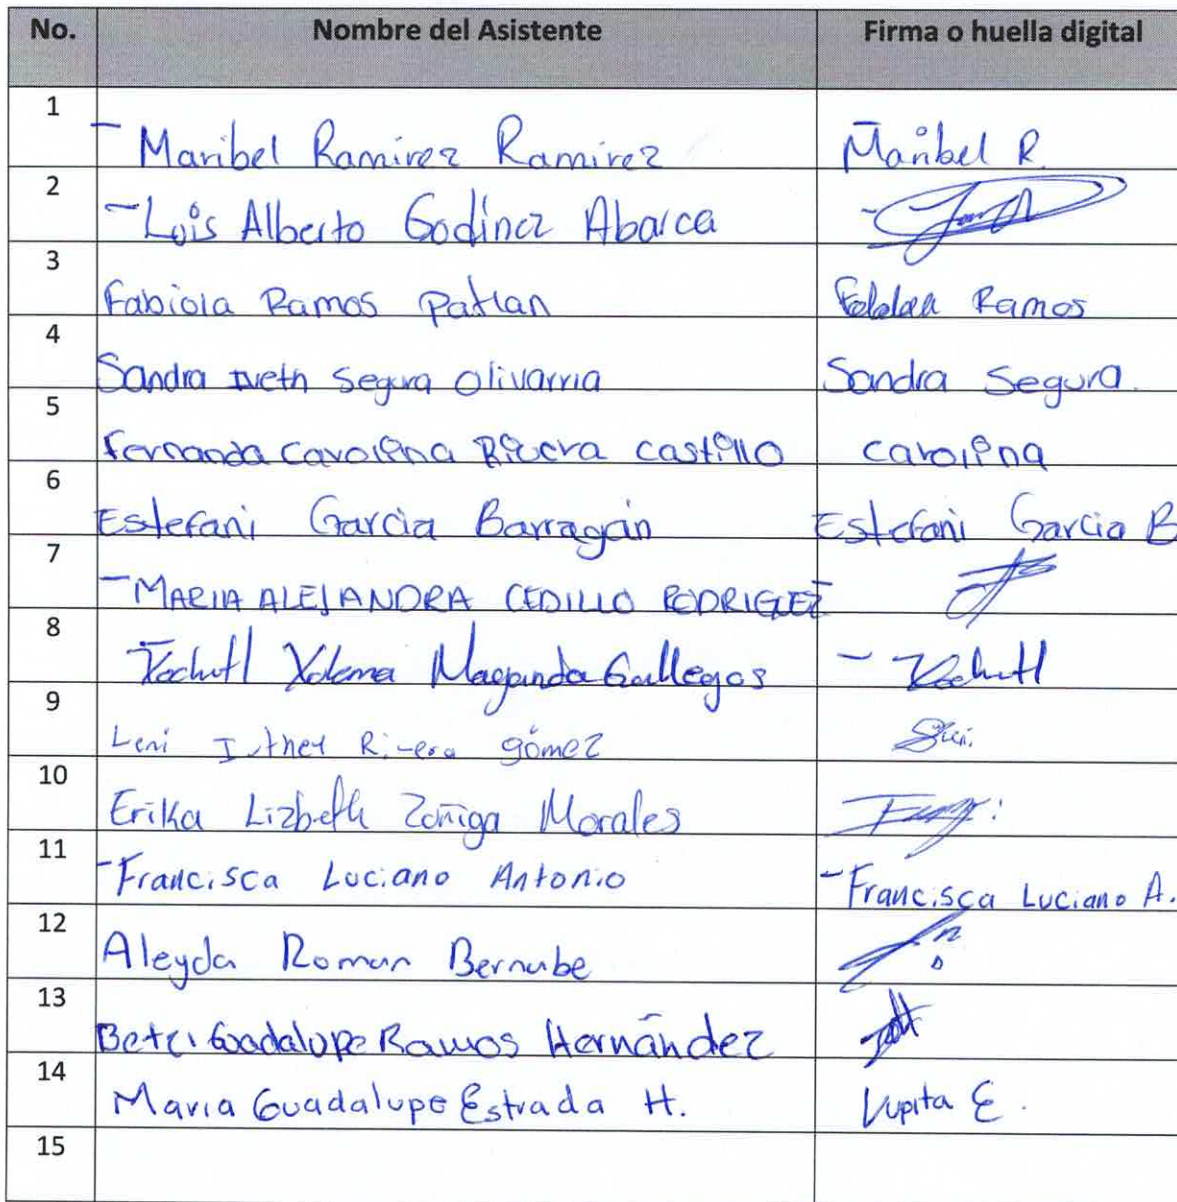 No. Nombre del Asistente Firma o huella digital
1 - Maribel Ramirez Ramirez Maribel R.
2 - Luis Alberto Godinez Abarca
3 Fabiola Ramos Patlan Ramos
4 Sandra Iveth Segura Olivarria Sandra Segura.
5 Fernanda Carolina Rivera Castillo Carolina
6 Estefani Garcia Barragán Estefani Garcia B
7 - MARIA ALEJANDRA CEDILLO RODRIGUEZ
8 Xochutl Maganda Gallegos - Xochutl
9 Rivera gómez
10 Erika Lizbeth Zoñiga Morales
11 - Francisca Luciano Antonio - Francisca Luciano A.
12 Aleyda Roman Bernabe
13 Betzi Guadalupe Ramos Hernández
14 Maria Guadalupe Estrada H. Lupita E.
15